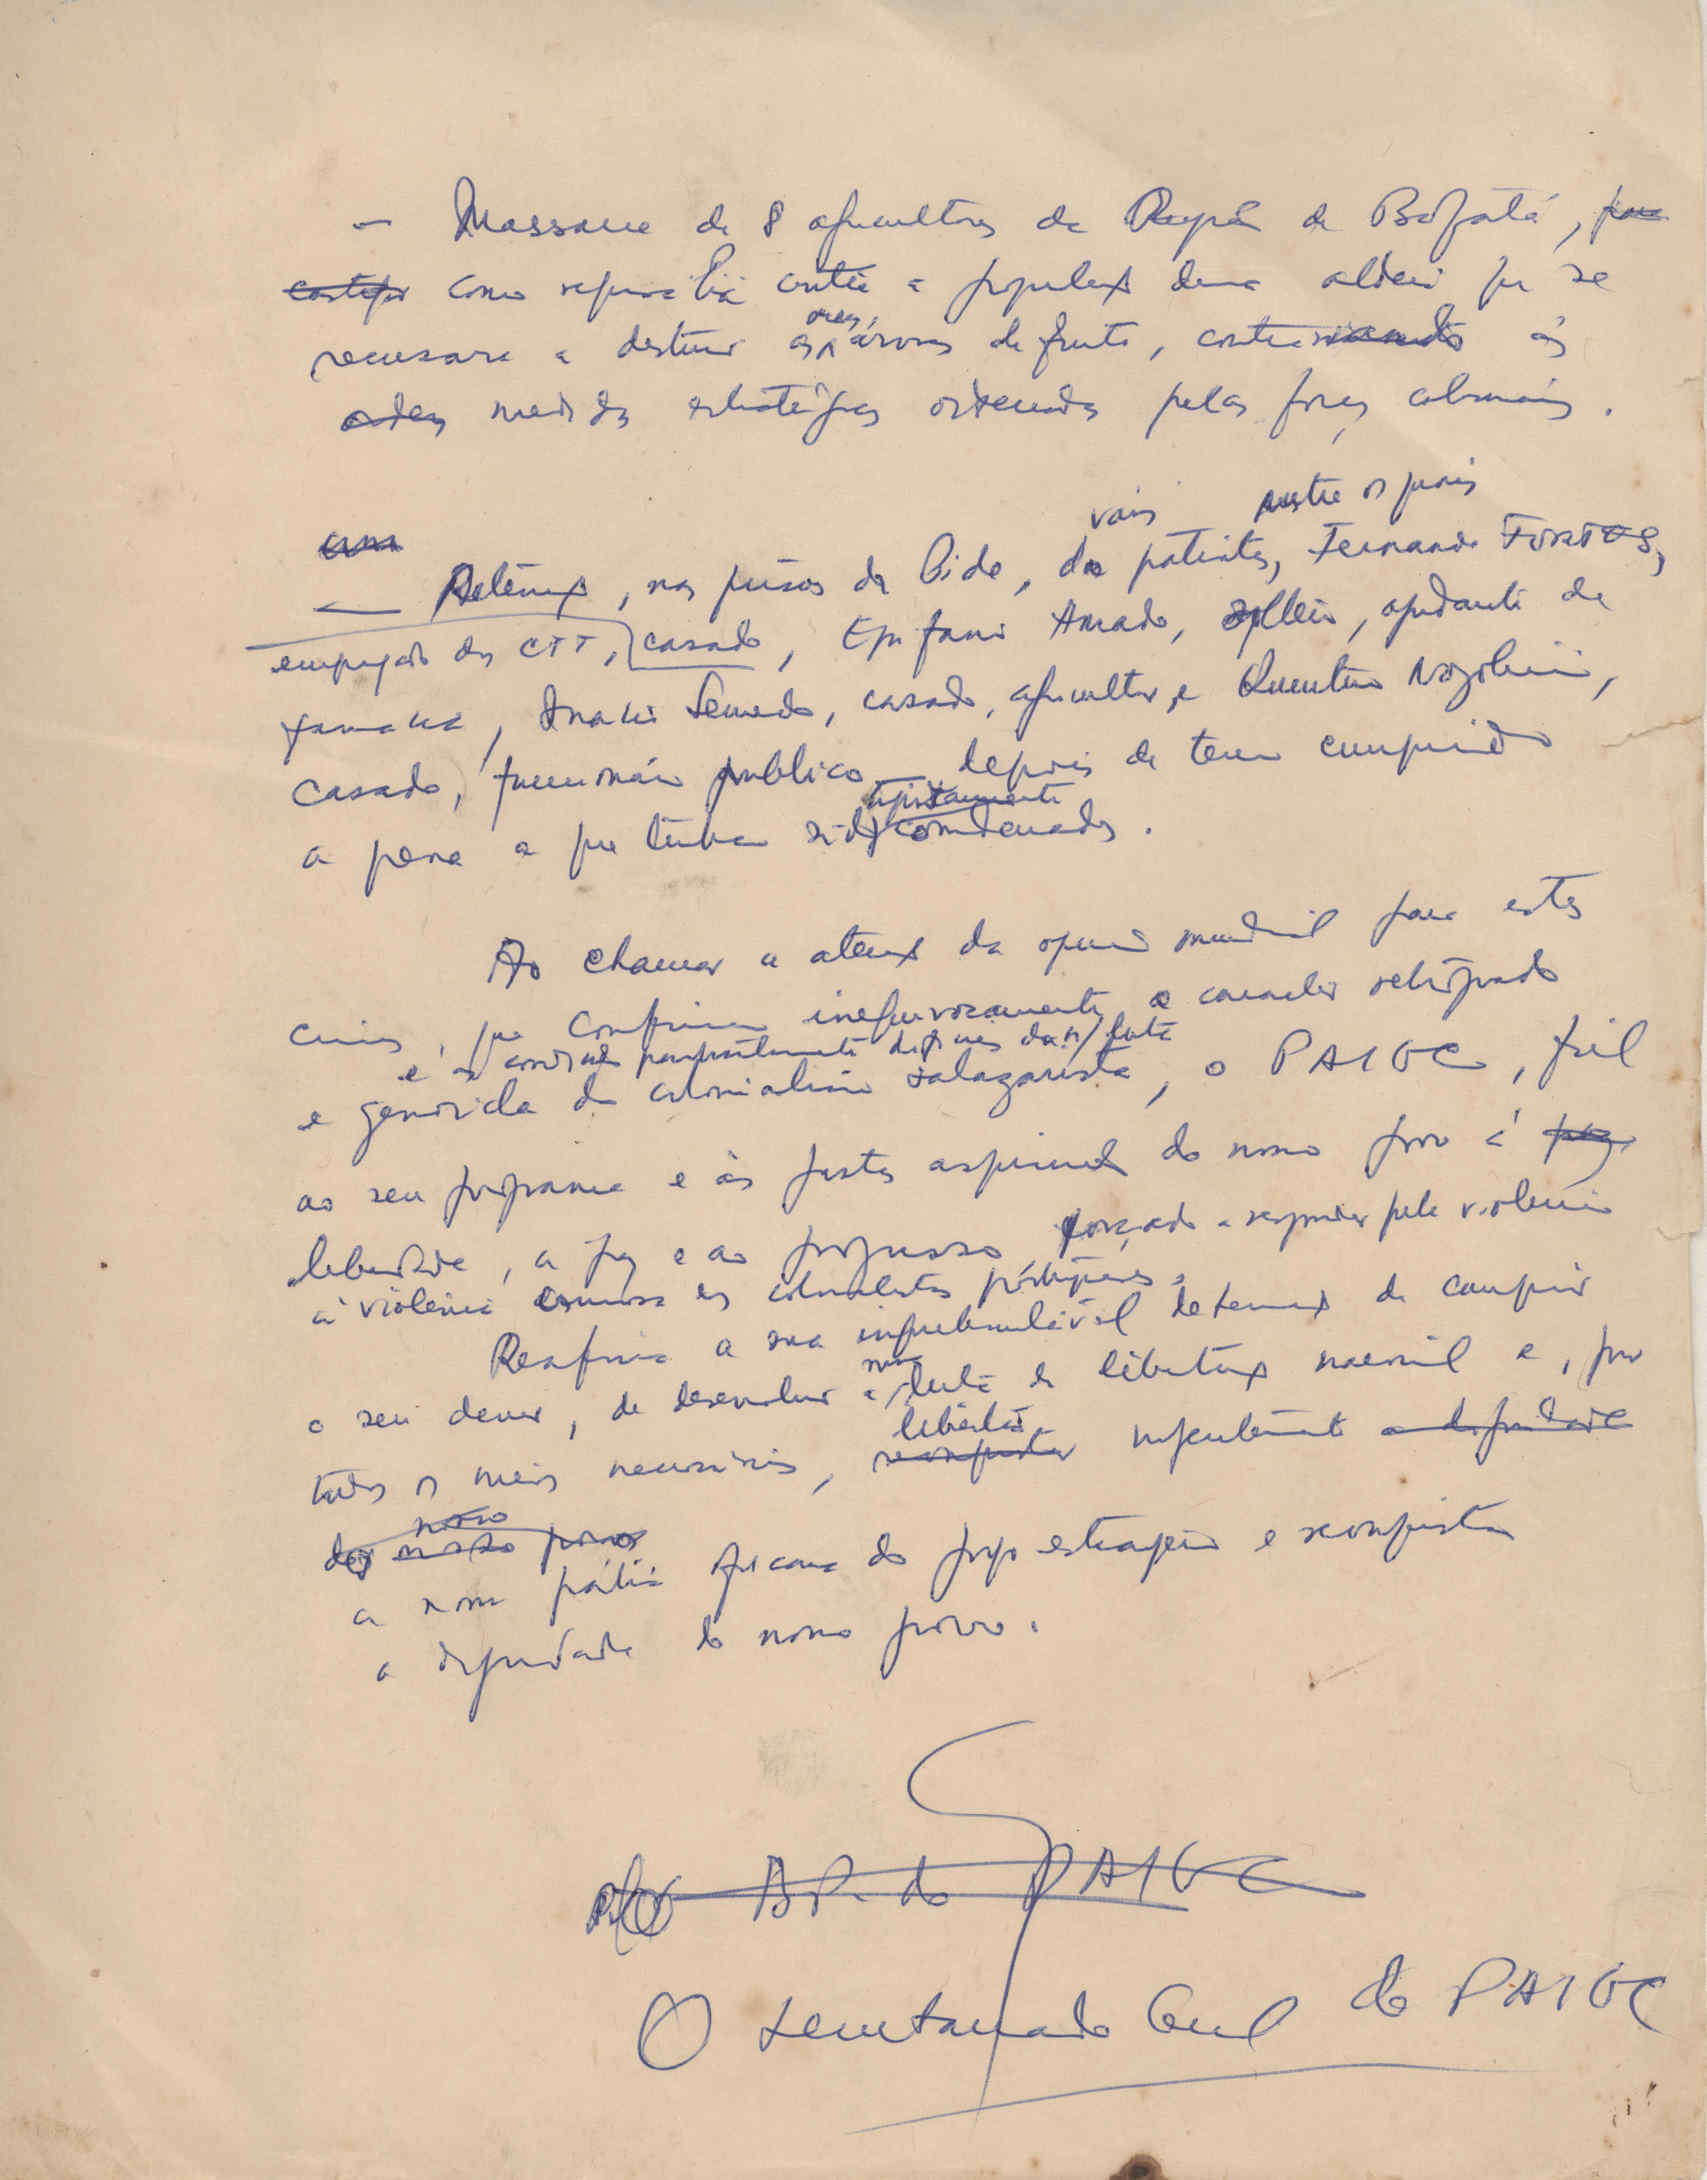 — Massacre de 8 agricultores da Região de Bafatá, para
castigo como represália contra a população duma aldeia que se
recusara a destruir as suas árvores de fruto, contrariando as
ordens medidas estratégicas ordenadas pelas forças coloniais.
vários entre os quais
— Detenção, nas prisões da Pide, de patriotas, Fernando FORTES,
empregado dos CTT, casado, Epifanio Amado, solteiro, ajudante de
farmacia, Inacio Semedo, casado, agricultor, e Quintino Nozolini,
casado, funcionário publico — depois de terem cumprido
injustamente
a pena a que tinham sido condenados.
Ao chamar a atenção da opinião mundial para estes
crimes, que confirmam inequivocamente o caracter retrógrado
e as condições da n/ luta
e genocida do colonialismo salazarista, o PAIGC, fiel
ao seu programa e às justas aspirações do nosso povo à paz
liberdade, à paz e ao progresso, forçado a responder pela violência
à violência dos colonialistas portugueses,
Reafirma a sua inquebrantável determinação de cumprir
o seu dever, de desenvolver a nossa luta de libertação nacional e, por
todos os meios necessários, libertar
reconquistar rapidamente a dignidade
do nosso povo
a nossa pátria africana do jugo estrangeiro e reconquistar
a dignidade do nosso povo.
B.P. do PAIGC
O Secretariado Geral do PAIGC